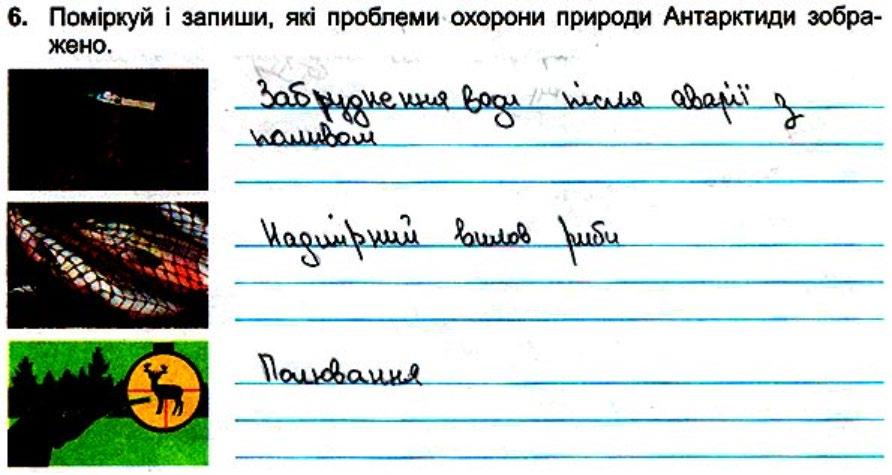 6. Поміркуй і запиши, які проблеми охорони природи Антарктиди зобра-
жено.
Забруднення води після аварії з
паливом
Надмірний вилов риби
Полювання